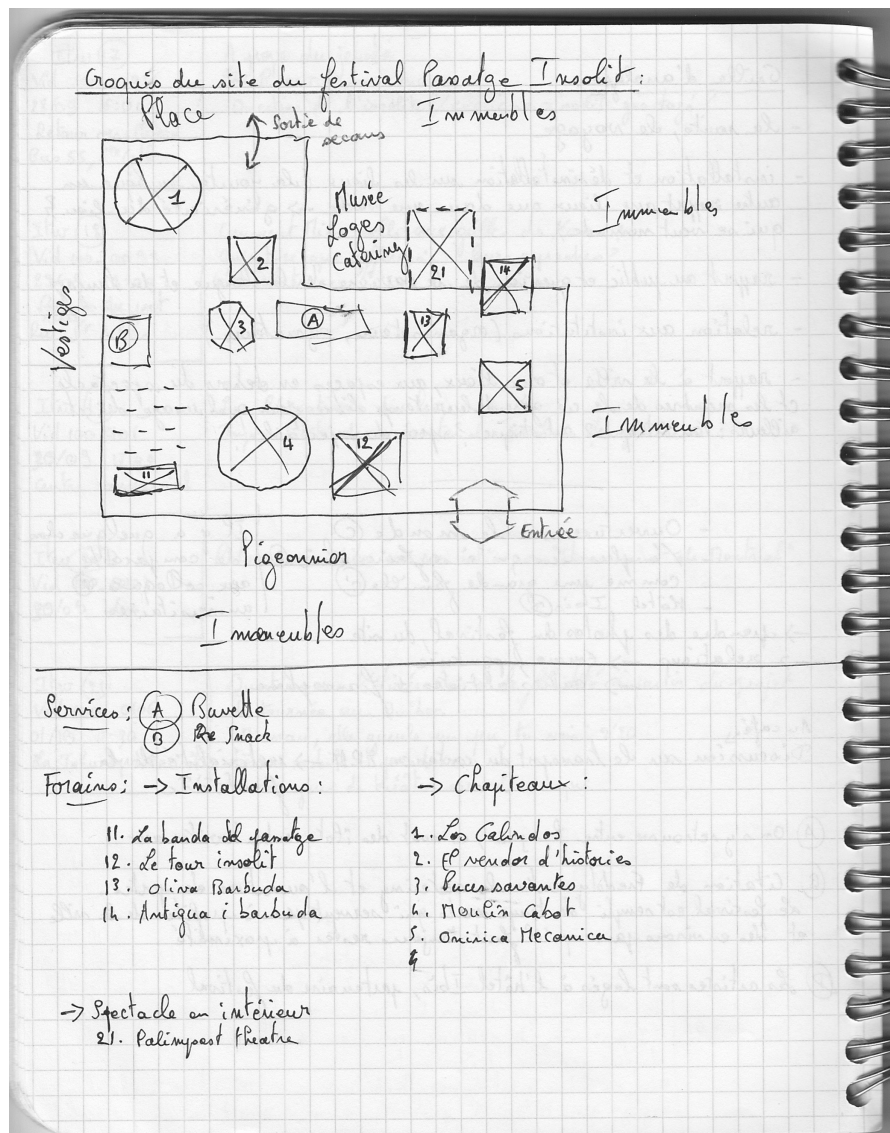 Croquis du site du festival Passatge Insolit :
Place
Sortie de
secours
Immeubles
1
Musée
Loges
Catering
21
Immeubles
2
14
Vestiges
B
3
A
13
5
Immeubles
4
12
11
Entrée
Pigeonnier
Immeubles
Services : A Buvette
B Snack
Forains : -> Installations :
-> Chapiteaux :
11. La banda del passatge
12. Le tour insolit
13. Oliva Barbuda
14. Antigua i barbuda
1. Los Galindos
2. El venedor d'histories
3. Puces savantes
4. Moulin Cabot
5. Onirica Mecanica
-> Spectacle en intérieur
21. Palimpsest theatre